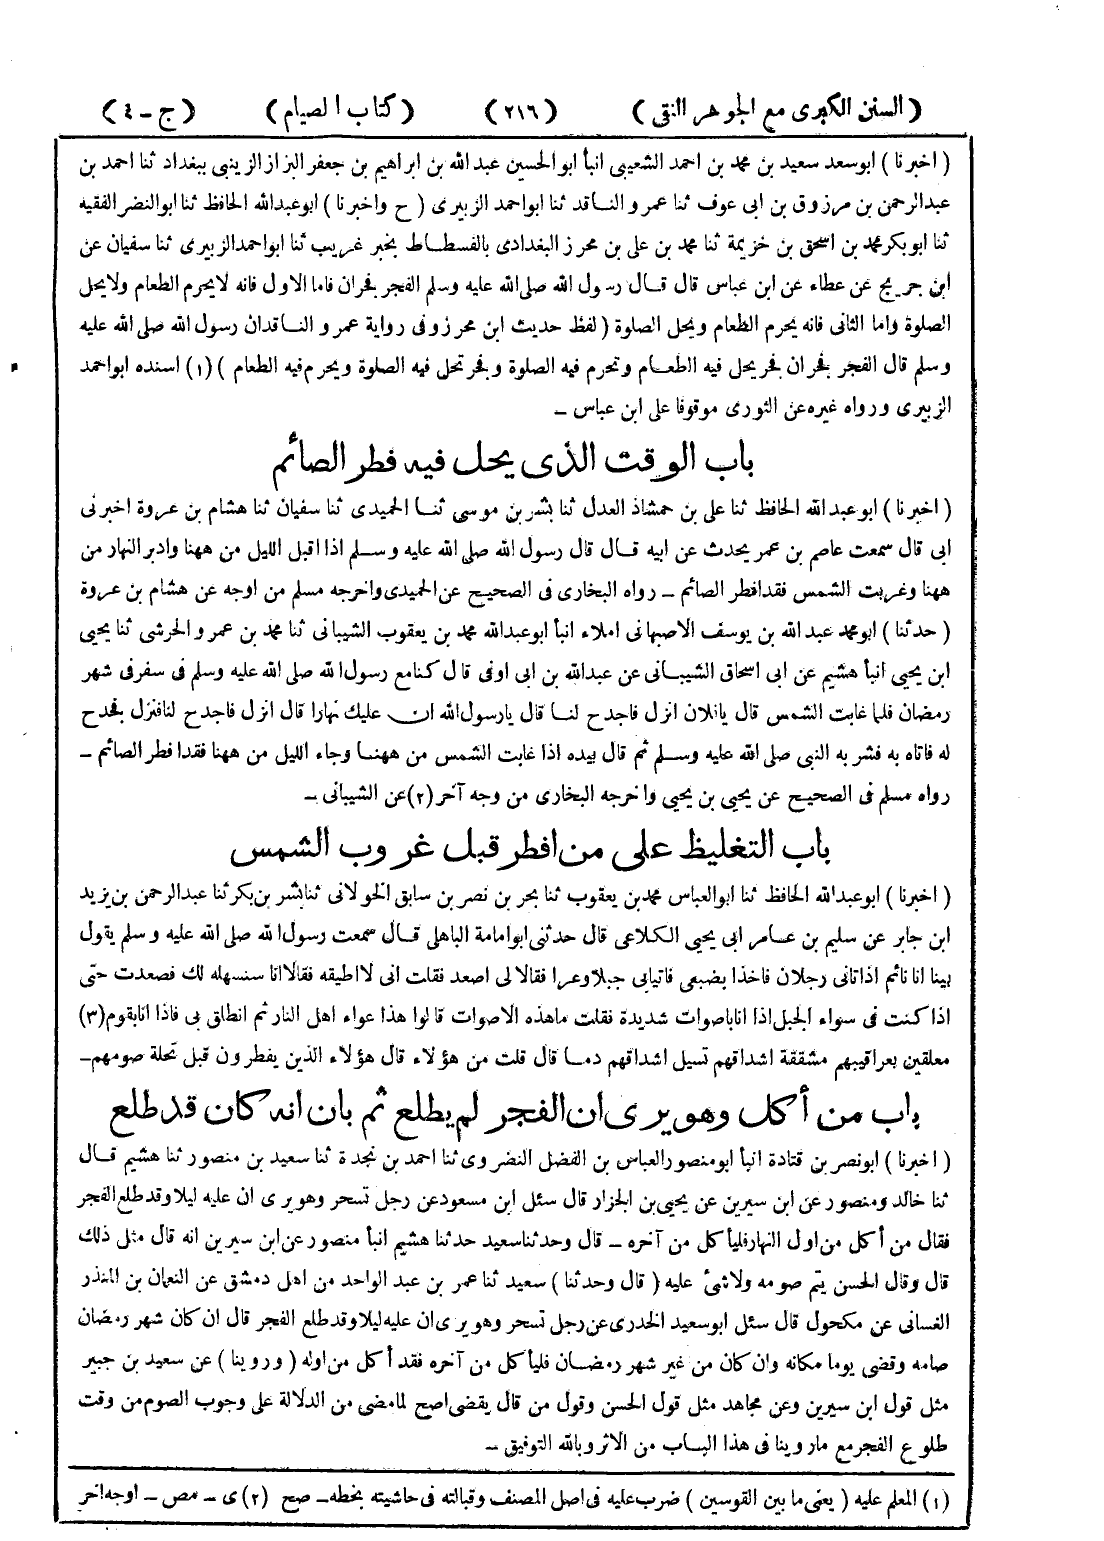 ( السنن الكبرى مع الجوهر النقى ) ( ٢١٦ ) ( كتاب الصيام ) ( ج - ٤ )
( اخبرنا ) ابوسعد سعيد بن محمد بن احمد الشعيبى انبأ ابو الحسين عبد الله بن ابراهيم بن جعفر البزاز الزينبى ببغداد ثنا احمد بن
عبدالرحمن بن مرزوق بن ابى عوف ثنا عمرو الناقد ثنا ابواحمد الزبيرى ( ح واخبرنا ) ابوعبدالله الحافظ ثنا ابوالنضر الفقيه
ثنا ابوبكر محمد بن اسحق بن خزيمة ثنا محمد بن على بن محرز البغدادى بالفسطاط بخبر غريب ثنا ابواحمدالزبيرى ثنا سفيان عن
ابن جريج عن عطاء عن ابن عباس قال قال رسول الله صلى الله عليه وسلم الفجر فجران فاما الاول فانه لايحرم الطعام ولايحل
الصلوة واما الثانى فانه يحرم الطعام ويحل الصلوة ( لفظ حديث ابن محرز وفى رواية عمرو الناقدان رسول الله صلى الله عليه
وسلم قال الفجر فجران فجر يحل فيه الطعام وتحرم فيه الصلوة وفجر تحل فيه الصلوة ويحرم فيه الطعام ) (١) اسنده ابواحمد
الزبيرى ورواه غيره عن الثورى موقوفا على ابن عباس -
باب الوقت الذى يحل فيه فطر الصائم
( اخبرنا ) ابوعبد الله الحافظ ثنا على بن حمشاذ العدل ثنا بشر بن موسى ثنا الحميدى ثنا سفيان ثنا هشام بن عروة اخبرنى
ابى قال سمعت عاصم بن عمر يحدث عن ابيه قال قال رسول الله صلى الله عليه وسلم اذا اقبل الليل من ههنا وادبر النهار من
ههنا وغربت الشمس فقد افطر الصائم - رواه البخارى فى الصحيح عن الحميدى واخرجه مسلم من اوجه عن هشام بن عروة
( حدثنا ) ابو محمد عبد الله بن يوسف الاصبهانى املاء انبأ ابوعبدالله محمد بن يعقوب الشيبانى ثنا محمد بن عمرو الحرشى ثنا يحيى
ابن يحيى انبأ هشيم عن ابى اسحاق الشيبانى عن عبدالله بن ابى اوفى قال كنا مع رسول الله صلى الله عليه وسلم فى سفر فى شهر
رمضان فلما غابت الشمس قال يافلان انزل فاجدح لنا قال يارسول الله ان عليك نهارا قال انزل فاجدح لنا فنزل فجدح
له فاتاه به فشر به النبى صلى الله عليه وسلم ثم قال بيده اذا غابت الشمس من ههنا وجاء الليل من ههنا فقد افطر الصائم -
رواه مسلم فى الصحيح عن يحيى بن يحيى واخرجه البخارى من وجه آخر (٢) عن الشيبانى -
باب التغليظ على من افطر قبل غروب الشمس
( اخبرنا ) ابوعبدالله الحافظ ثنا ابوالعباس محمد بن يعقوب ثنا بحر بن نصر بن سابق الخولانى ثنا بشر بن بكر ثنا عبدالرحمن بن يزيد
ابن جابر عن سليم بن عامر ابى يحيى الكلاعى قال حدثنى ابوامامة الباهلى قال سمعت رسول الله صلى الله عليه وسلم يقول
بينا انا نائم اذ اتانى رجلان فاخذا بضبعى فاتيابى جبلا وعرا فقالا لى اصعد فقلت انى لا اطيقه فقالا انا سنسهله لك فصعدت حتى
اذا كنت فى سواء الجبل اذا انا باصوات شديدة فقلت ماهذه الاصوات قالوا هذا عواء اهل النار ثم انطلق بى فاذا انا بقوم (٣)
معلقين بعراقيبهم مشققة اشداقهم تسيل اشداقهم دما قال قلت من هؤلاء قال هؤلاء الذين يفطرون قبل تحلة صومهم-
باب من أكل وهو يرى ان الفجر لم يطلع ثم بان انه كان قد طلع
( اخبرنا ) ابونصر بن قتادة انبأ ابومنصور العباس بن الفضل النضروى ثنا احمد بن نجدة ثنا سعيد بن منصور ثنا هشيم قال
ثنا خالد ومنصور عن ابن سيرين عن يحيى بن الجزار قال سئل ابن مسعود عن رجل تسحر وهو يرى ان عليه ليلا وقد طلع الفجر
فقال من أكل من اول النهار فليأكل من آخره - قال وحدثنا سعيد حدثنا هشيم انبأ منصور عن ابن سيرين انه قال مثل ذلك
قال وقال الحسن يتم صومه ولا شئ عليه ( قال وحدثنا ) سعيد ثنا عمر بن عبد الواحد من اهل دمشق عن النعمان بن المنذر
الغسانى عن مكحول قال سئل ابوسعيد الخدرى عن رجل تسحر وهو يرى ان عليه ليلا وقد طلع الفجر قال ان كان شهر رمضان
صامه وقضى يوما مكانه وان كان من غير شهر رمضان فليأكل من آخره فقد أكل من اوله ( وروينا ) عن سعيد بن جبير
مثل قول ابن سيرين وعن مجاهد مثل قول الحسن وقول من قال يقضى اصح لما مضى من الدلالة على وجوب الصوم من وقت
طلوع الفجر مع ماروينا فى هذا الباب من الاثر وبالله التوفيق -
(١) المعلم عليه ( يعنى ما بين القوسين ) ضرب عليه فى اصل المصنف وقبالته فى حاشيته بخطه- صح (٢) ى - مص - اوجه اخر